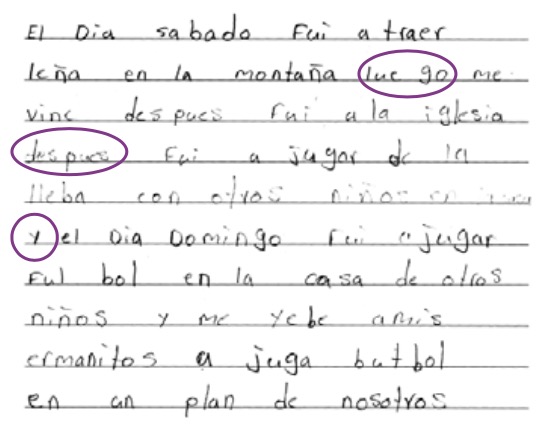 El Dia sabado Fui a traer
leña en la montaña lue go me
vine des pues Fui a la iglesia
des pues Fui a jugar de la
lleba con otros niños
y el Dia Domingo Fui a jugar
Ful bol en la casa de otros
niños y me yebe amis
ermanitos a juga butbol
en un plan de nosotros